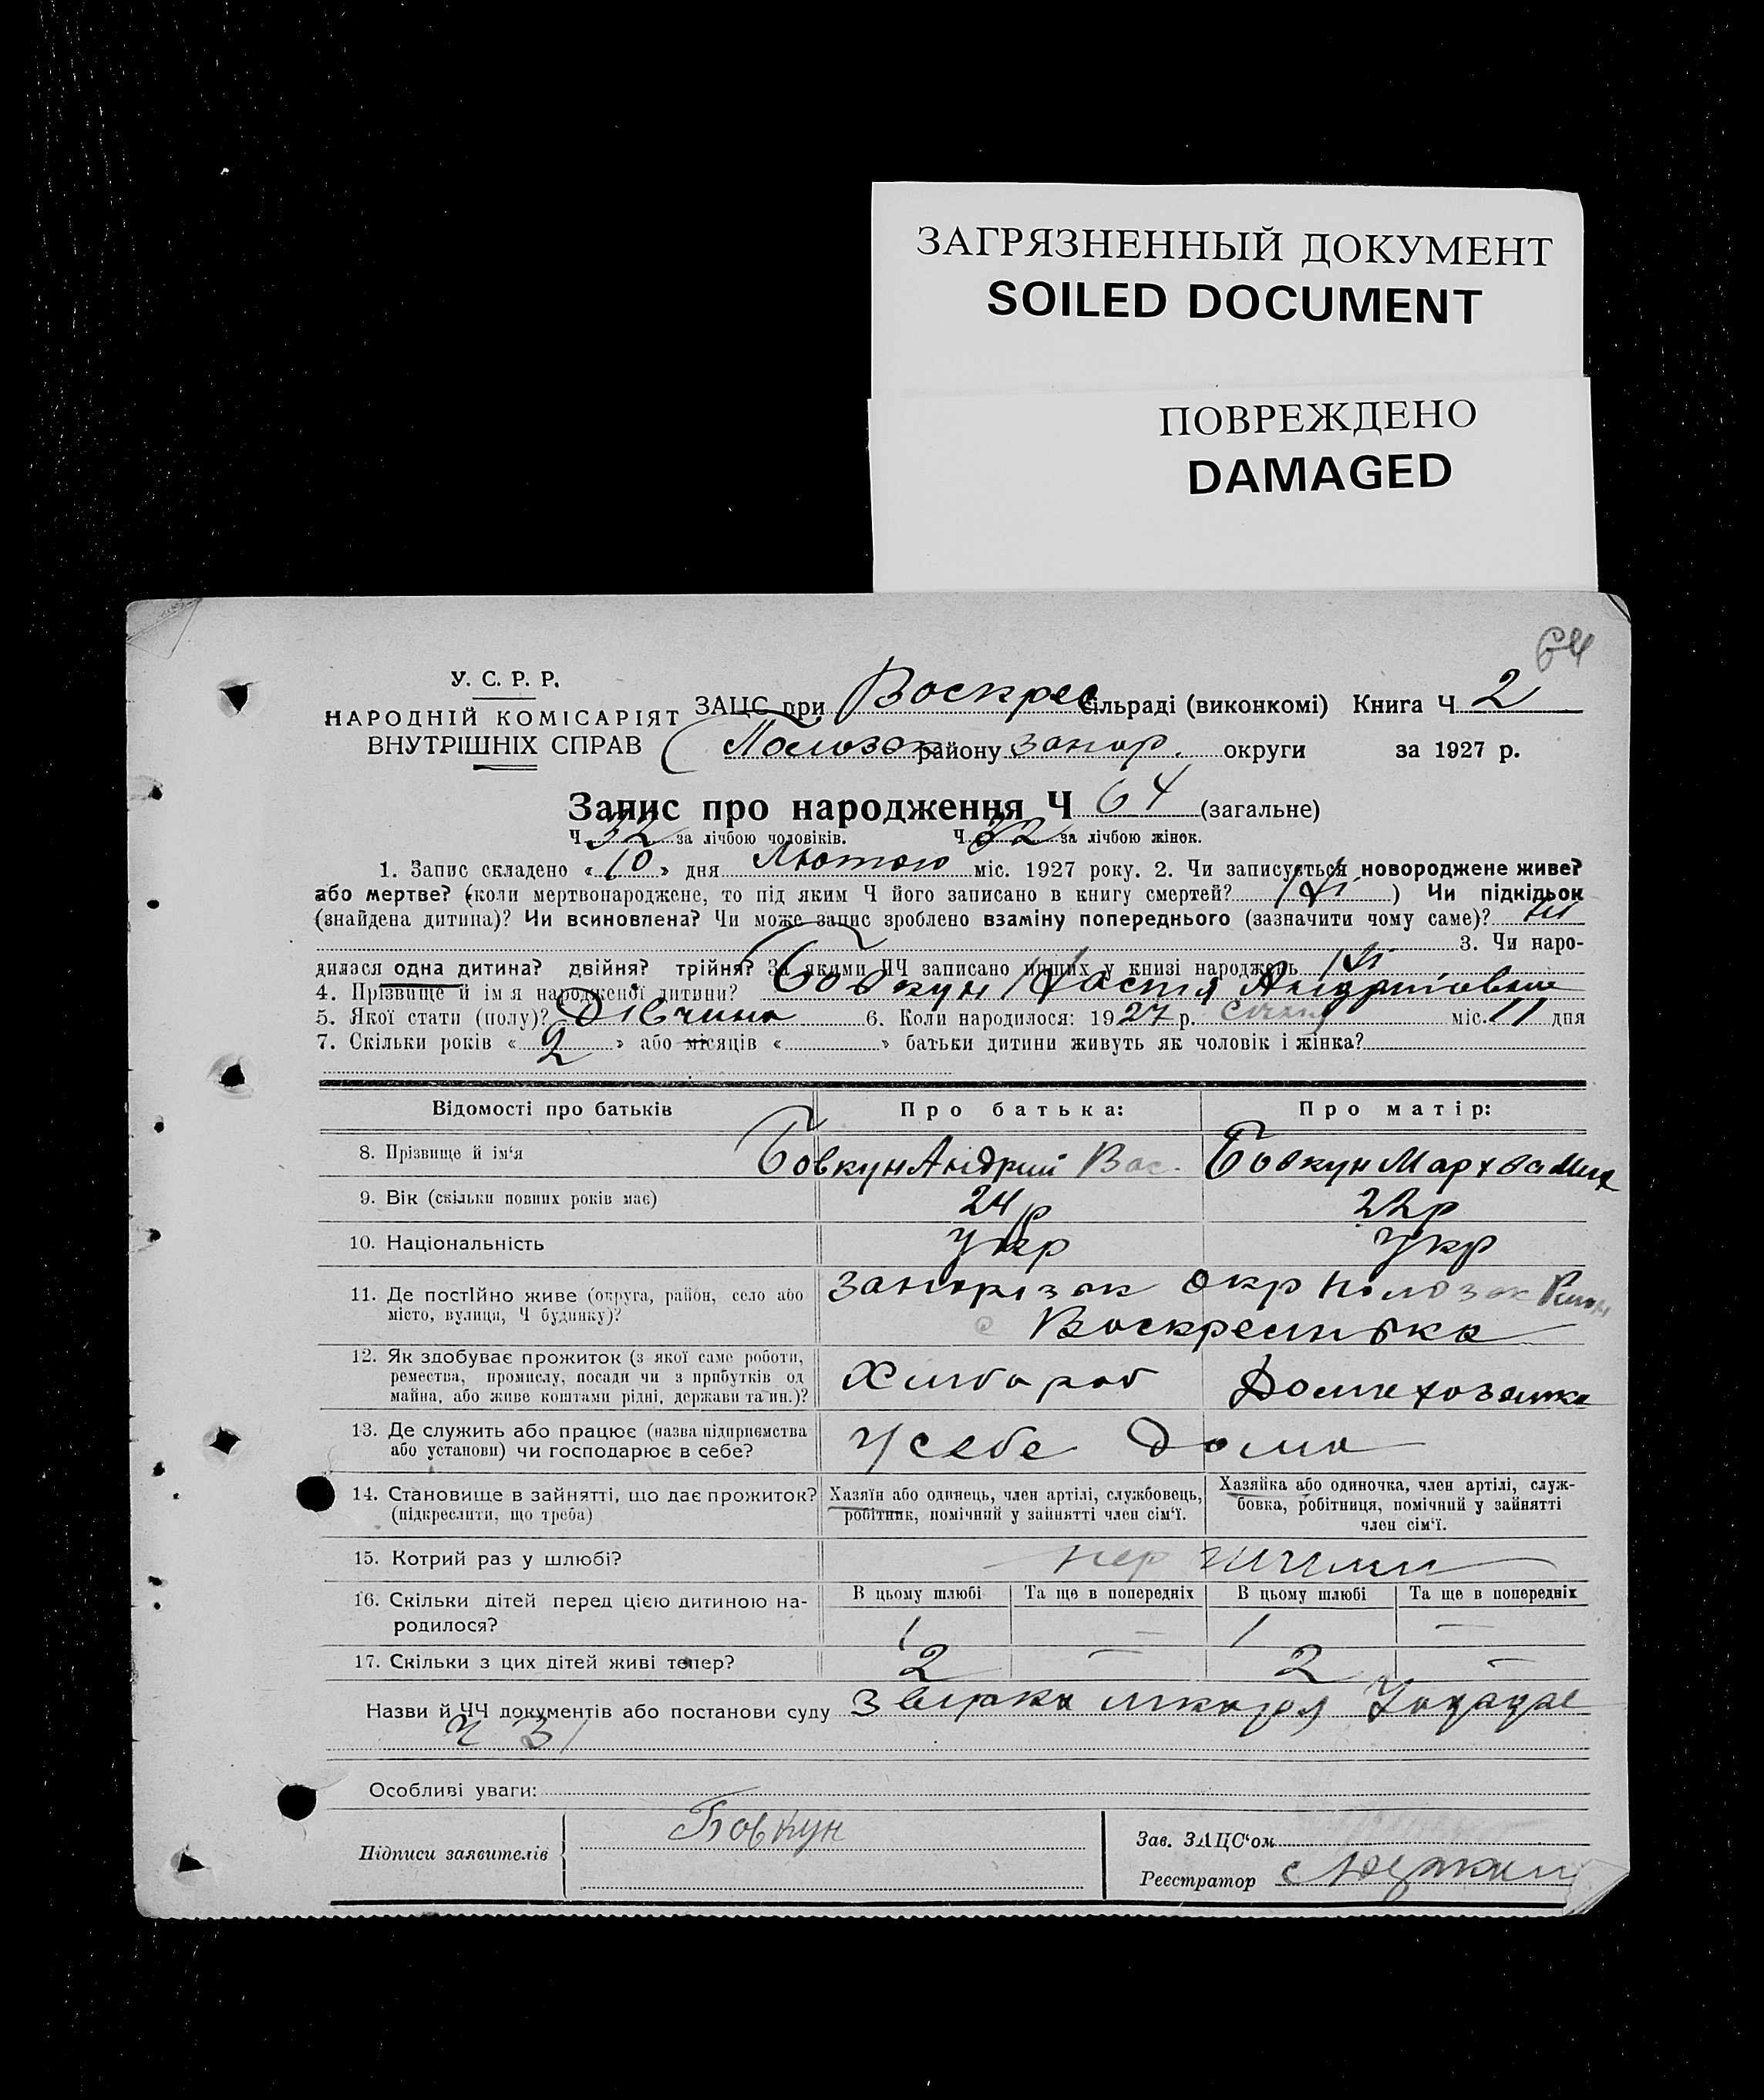 ЗАГРЯЗНЕННЫЙ ДОКУМЕНТ
SOILED DOCUMENT
ПОВРЕЖДЕНО
DAMAGED
64
У. С. Р. Р.
НАРОДНІЙ КОМІСАРІЯТ
ВНУТРІШНІХ СПРАВ
ЗАЦС при Воскрес сільраді (виконкомі) Книга Ч 2
Пологов району запор. округи за 1927 р.
Запис про народження Ч 64 (загальне)
Ч 32 за лічбою чоловіків. Ч 32 за лічбою жінок.
1. Запис складено « 10 » дня Лютого міс. 1927 року. 2. Чи записується новороджене живе?
або мертве? (коли мертвонароджене, то під яким Ч його записано в книгу смертей? Ні ) Чи підкідьок
(знайдена дитина)? Чи всиновлена? Чи може запис зроблено взаміну попереднього (зазначити чому саме)? Ні
3. Чи наро-
дилася одна дитина? двійня? трійня? За якими ЧЧ записано инших у книзі народжень Ні
4. Прізвище й ім'я народженої дитини? Бовкун Настя Андриівна
5. Якої стати (полу)? Дівчина 6. Коли народилося: 1927 р. Січня міс. 11 дня
7. Скільки років « 2 » або місяців « » батьки дитини живуть як чоловік і жінка?
Відомості про батьків Про батька: Про матір:
8. Прізвище й ім'я Бовкун Андрий Вас. Бовкун Мархва
9. Вік (скільки повних років має) 24 р 22 р
10. Національність Укр Укр
11. Де постійно живе (округа, район, село або Запорізьк Окр Пологзьк
місто, вулиця, Ч будинку)? с Воскресинька
12. Як здобуває прожиток (з якої саме роботи,
ремества, промислу, посади чи з прибутків од Хлибороб Домахозяйка
майна, або живе коштами рідні, держави та ин.)?
13. Де служить або працює (назва підприємства У себе дома
або установи) чи господарює в себе?
14. Становище в зайнятті, що дає прожиток? Хазяїн або одинець, член артілі, службовець, Хазяйка або одиночка, член артілі, служ-
(підкреслити, що треба) робітник, помічний у зайнятті член сім'ї. бовка, робітниця, помічний у зайнятті
член сім'ї.
15. Котрий раз у шлюбі?
16. Скільки дітей перед цією дитиною на- В цьому шлюбі Та ще в попередніх В цьому шлюбі Та ще в попередніх
родилося? 1 — 1 —
17. Скільки з цих дітей живі тепер? 2 — 2 —
Назви й ЧЧ документів або постанови суду
Ч 31
Особливі уваги:
Підписи заявителів Бовкун Зав. ЗАЦС'ом
Реєстратор